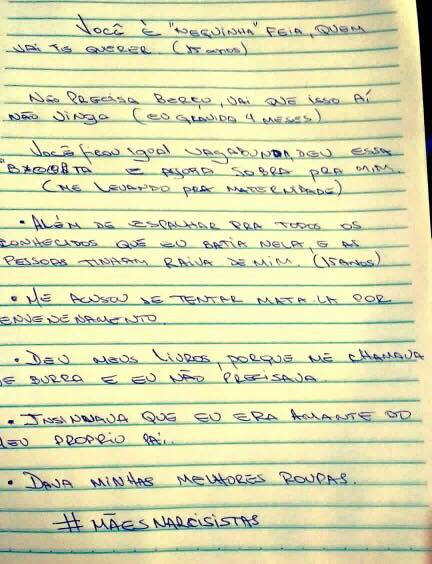 Você é "neguinha" feia, quem
vai te querer (15 anos)
Não precisa berço, vai que isso aí
não vinga (eu grávida 4 meses)
Você ficou igual vagabunda, deu essa
e agora sobra pra mim.
(me levando pra maternidade)
• Além de espalhar pra todos os
conhecidos que eu batia nela, e as
pessoas tinham raiva de mim. (15 anos)
• Me acusou de tentar mata-la por
envenenamento.
• Deu meus livros, porque me chamava
de burra e eu não precisava.
• Insinuava que eu era amante do
meu proprio pai.
• Dava minhas melhores roupas.
#mãesnarcisistas